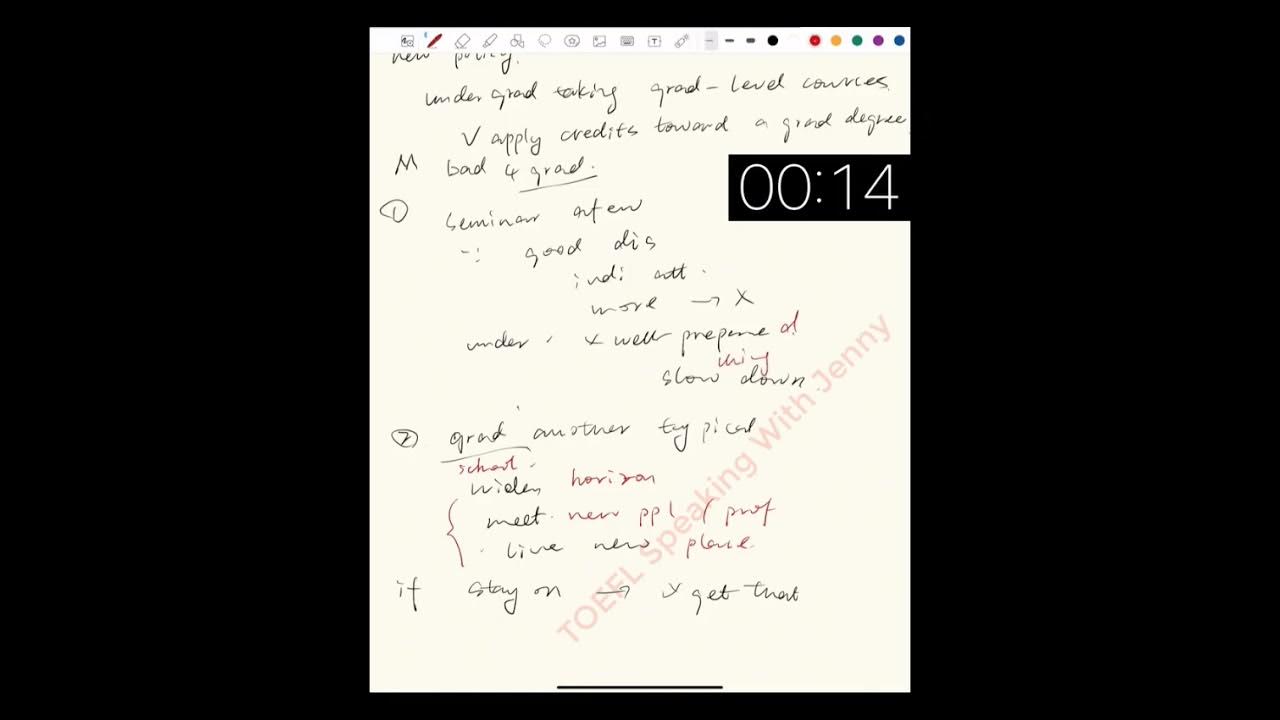 new policy.
undergrad taking grad-level cources
V apply credits toward a grad degree
00:14
M bad 4 grad.
① seminar a few
∵ good dis
indi att.
more → X
under. x well prepare d
thing
slow down
② grad another typical
school.
widen horizon
meet new ppl / prof
. live new place.
if stay on → x get that
TOEFL Speaking With Jenny